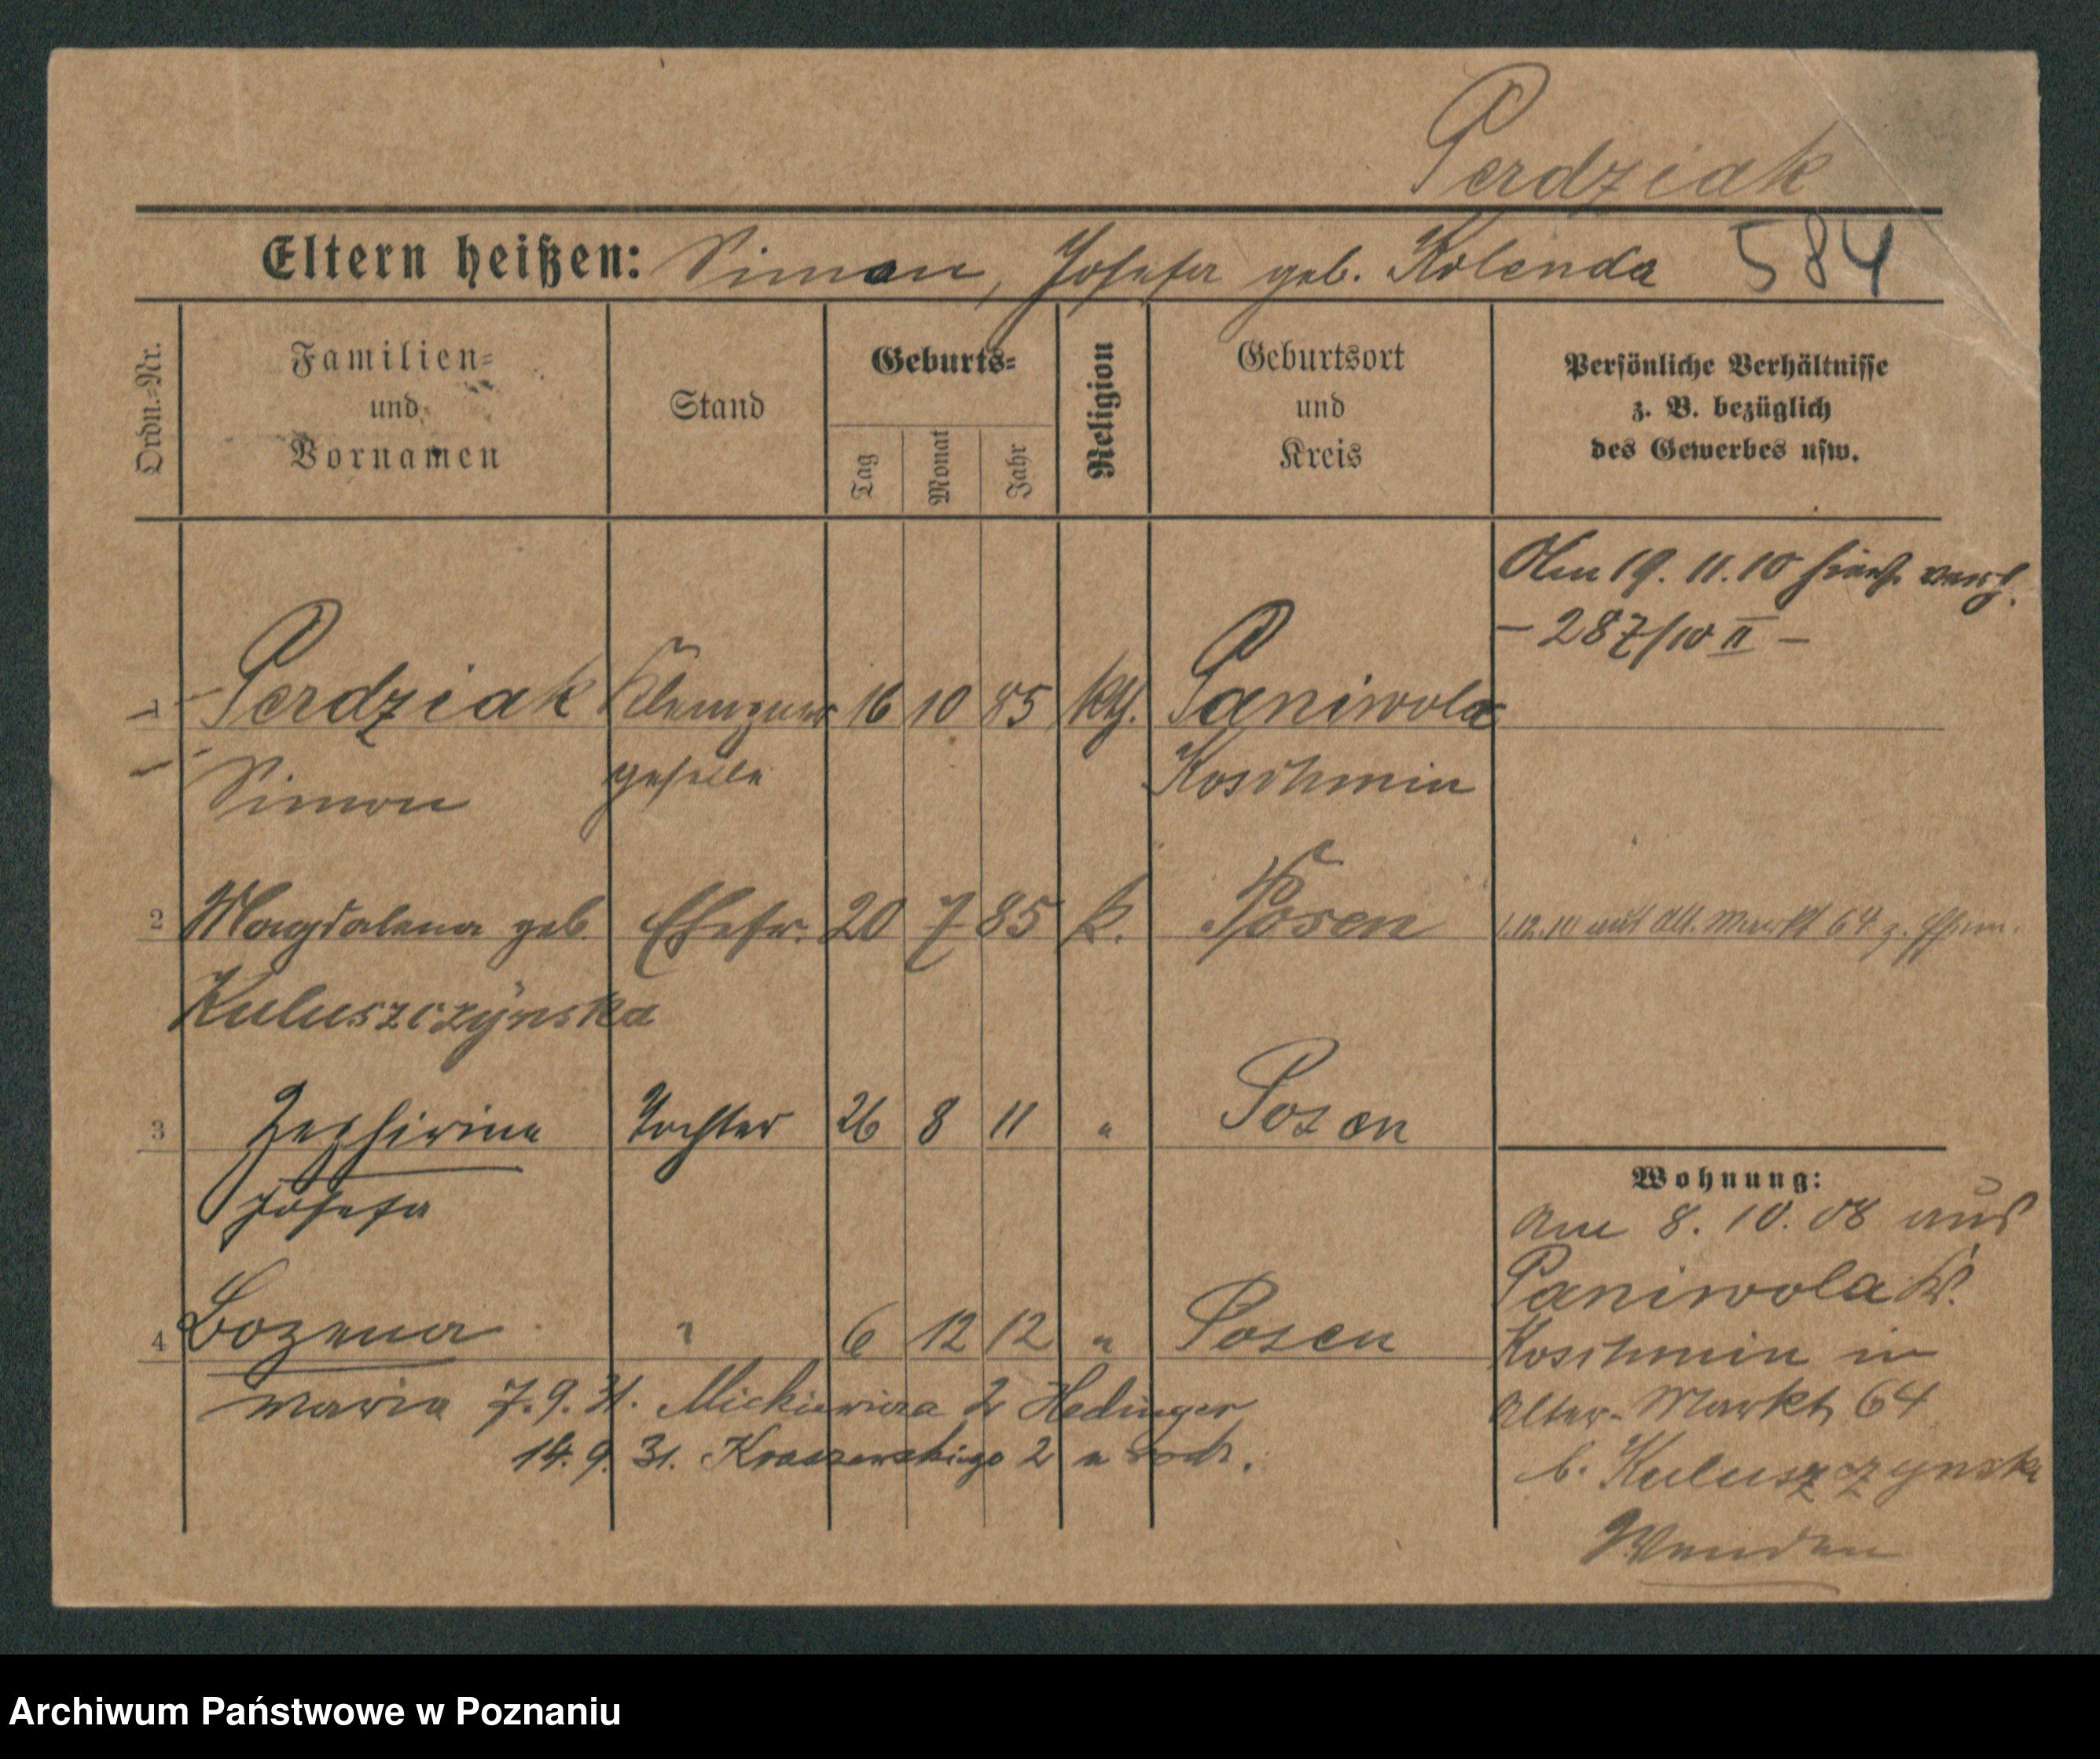 Perdziak
Eltern heißen: Simon, Josefa geb. Kolenda 584
Ordn.=Nr.
Familien=
und
Vornamen
Stand
Geburts=
Tag
Monat
Jahr
Religion
Geburtsort
und
Kreis
Persönliche Verhältnisse
z. B. bezüglich
des Gewerbes usw.
Am 19. 11. 10 hier verh.
– 287/10 II –
1 Perdziak Klempner 16 10 85 kth. Paniwola
Simon geselle Koschmin
2 Magdalena geb. Ehefr. 20 7 85 k. Posen 1.12.10 auf Alt. Markt 64 z. Ehem.
Kuluszczynska
3 Zephirina Tochter 26 8 11 " Posen
Josefa
4 Bozena " 6 12 12 " Posen
Maria 7. 9. 31. Mickiewicza 2 Hedinger
14. 9. 31. Kraszewskiego 2 u rodz.
Wohnung:
Am 8. 10. 08 aus
Paniwola Kr.
Koschmin in
Alter-Markt 64
b. Kuluszzynska
Wenden
Archiwum Państwowe w Poznaniu